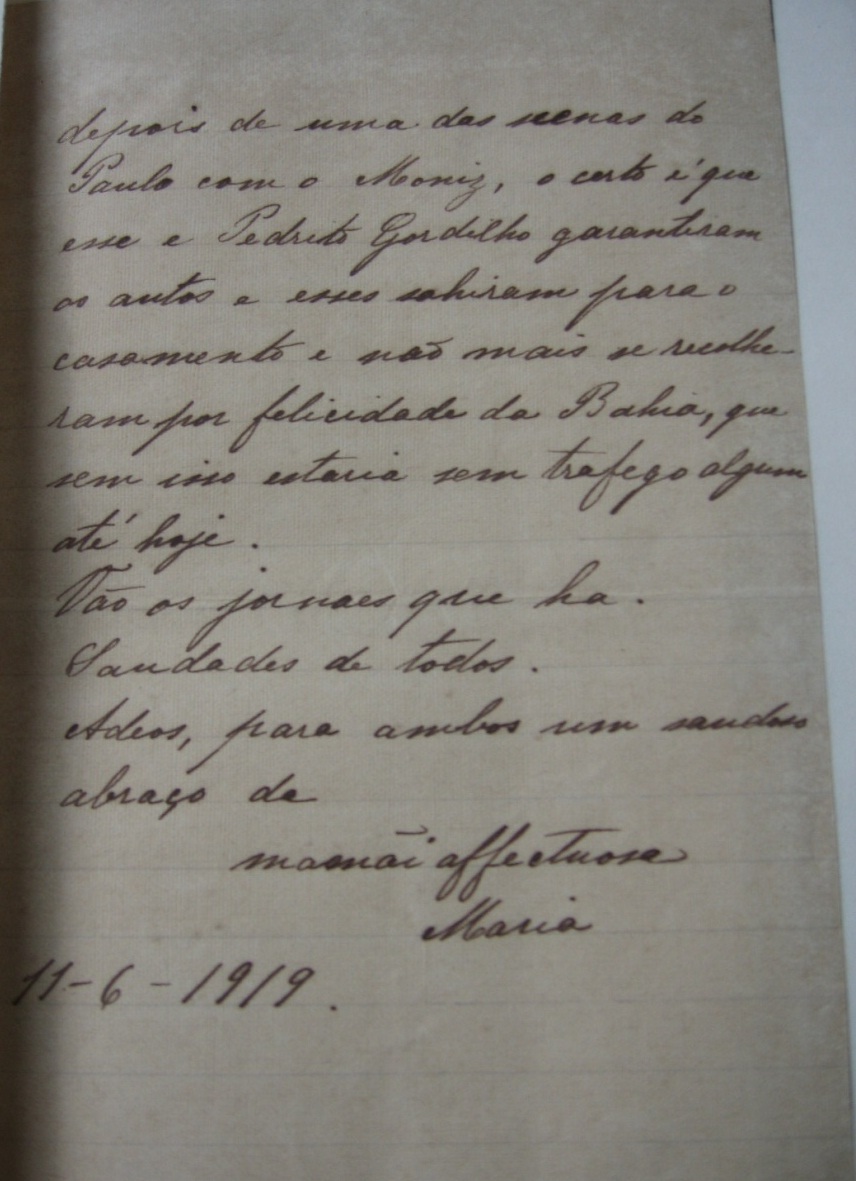 depois de uma das scenas do
Paulo com o Moniz, o certo é que
esse e Pedrito Gordilho garantiram
os autos e esses sahiram para o
casamento e não mais se recolhe-
ram por felicidade da Bahia, que
sem isso estaria sem trafego algum
até hoje.
Vão os jornaes que ha.
Saudades de todos.
Adeos, para ambos um saudoso
abraço da
mamãi affectuosa
Maria
11-6-1919.